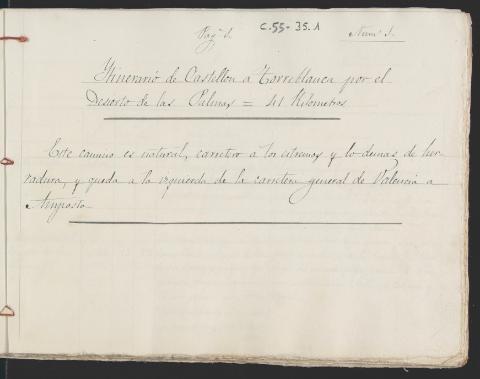 Pag.ª 1. C.55-35.1 Num.º 1.
Itinerario de Castellon a Torreblanca por el
Desierto de las Palmas = 41 Kilometros
Este camino es natural, carretero a los estremos y lo demas de her-
radura, y queda a la izquierda de la carretera general de Valencia a
Amposta